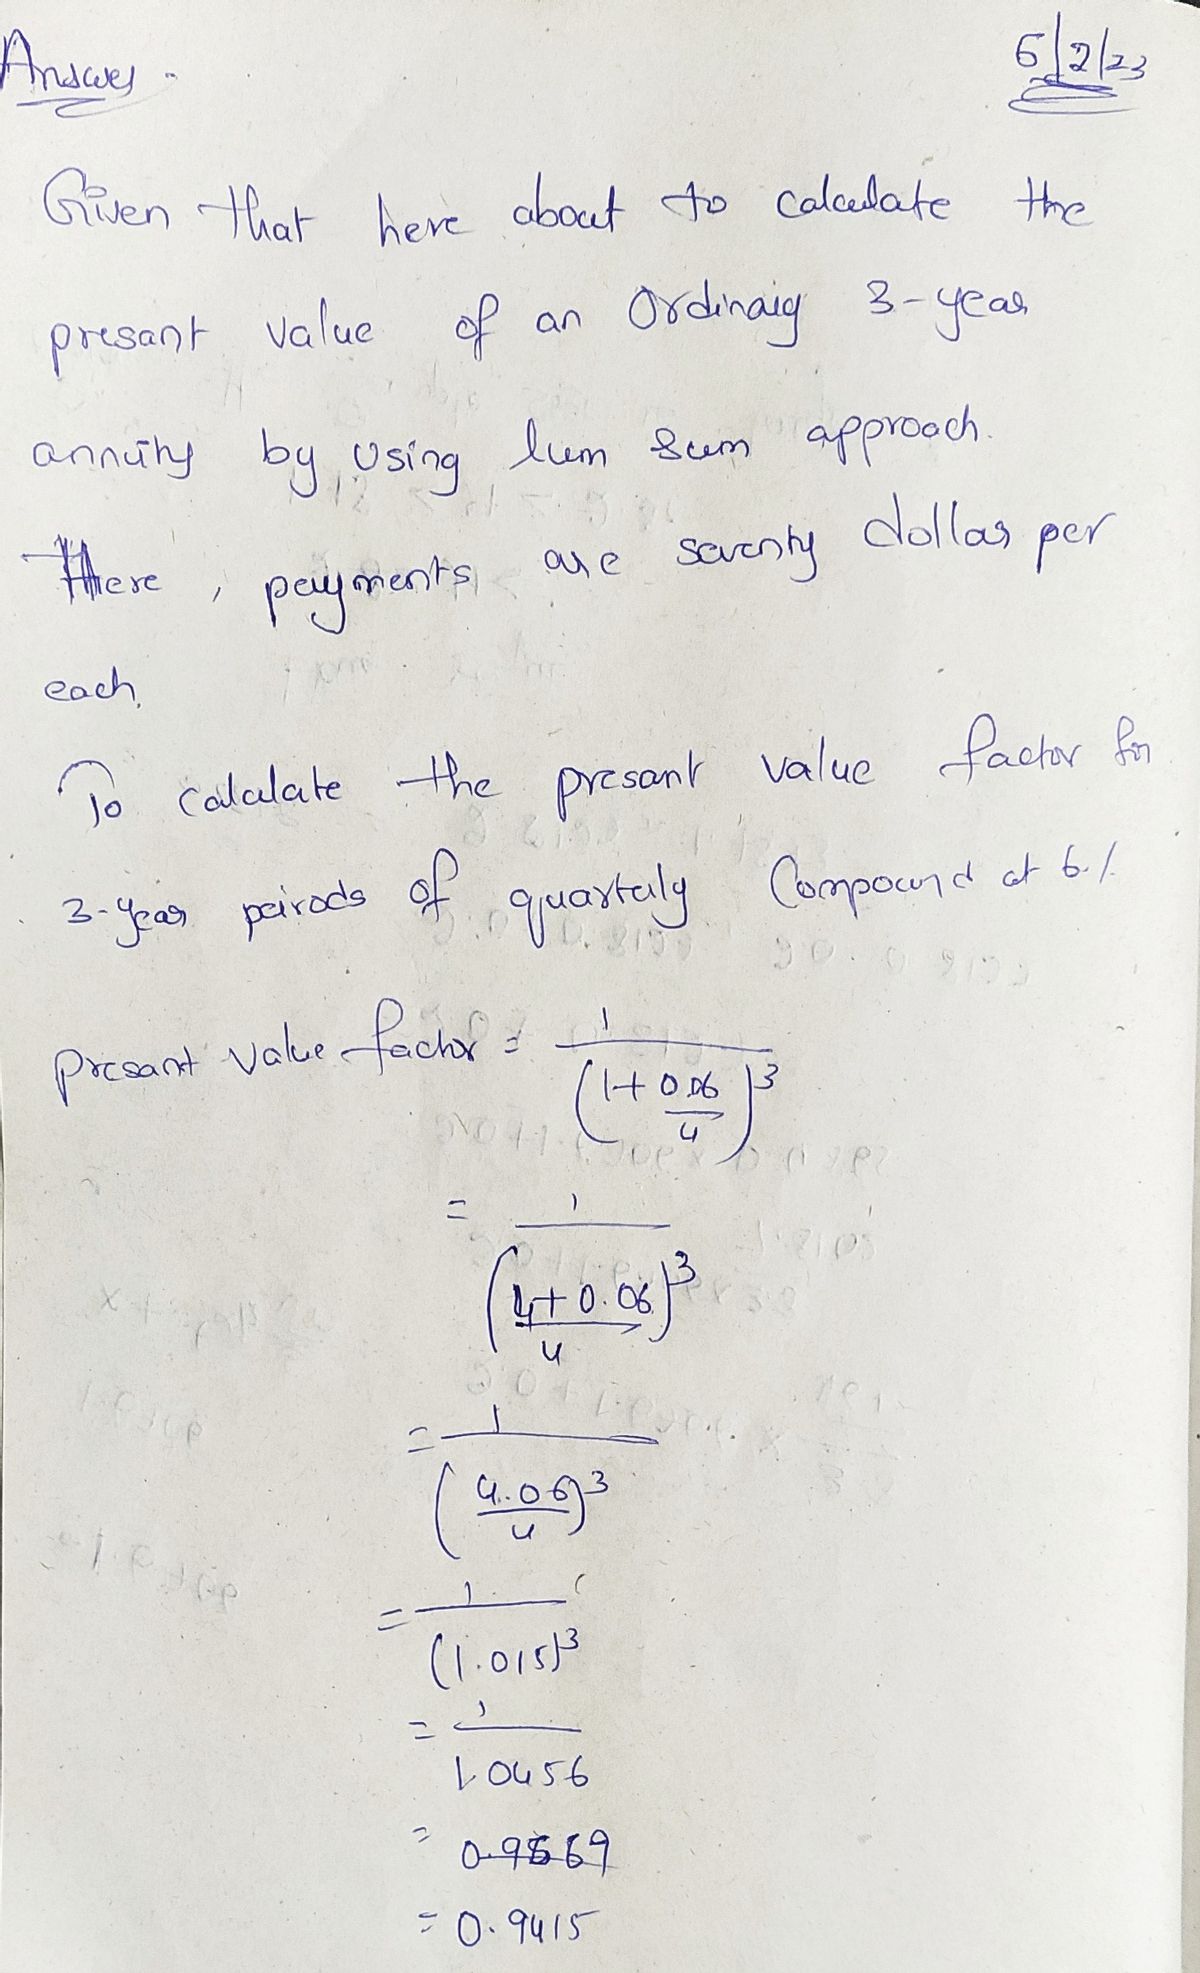 Answer.
6/2/23
Given that here about to calculate the
presant value of an Ordinary 3-year
annuity by using lum sum approach.
Here, payments are seventy dollar per
each.
To calculate the presant value factor for
3-year peirods of quarterly Compound at 6%
presant value factor = 1 / (1 + 0.06/4)^3
= 1 / ((4+0.06)/4)^3
= 1 / (4.06/4)^3
= 1 / (1.015)^3
= 1 / 1.0456
= 0.9569
= 0.9415